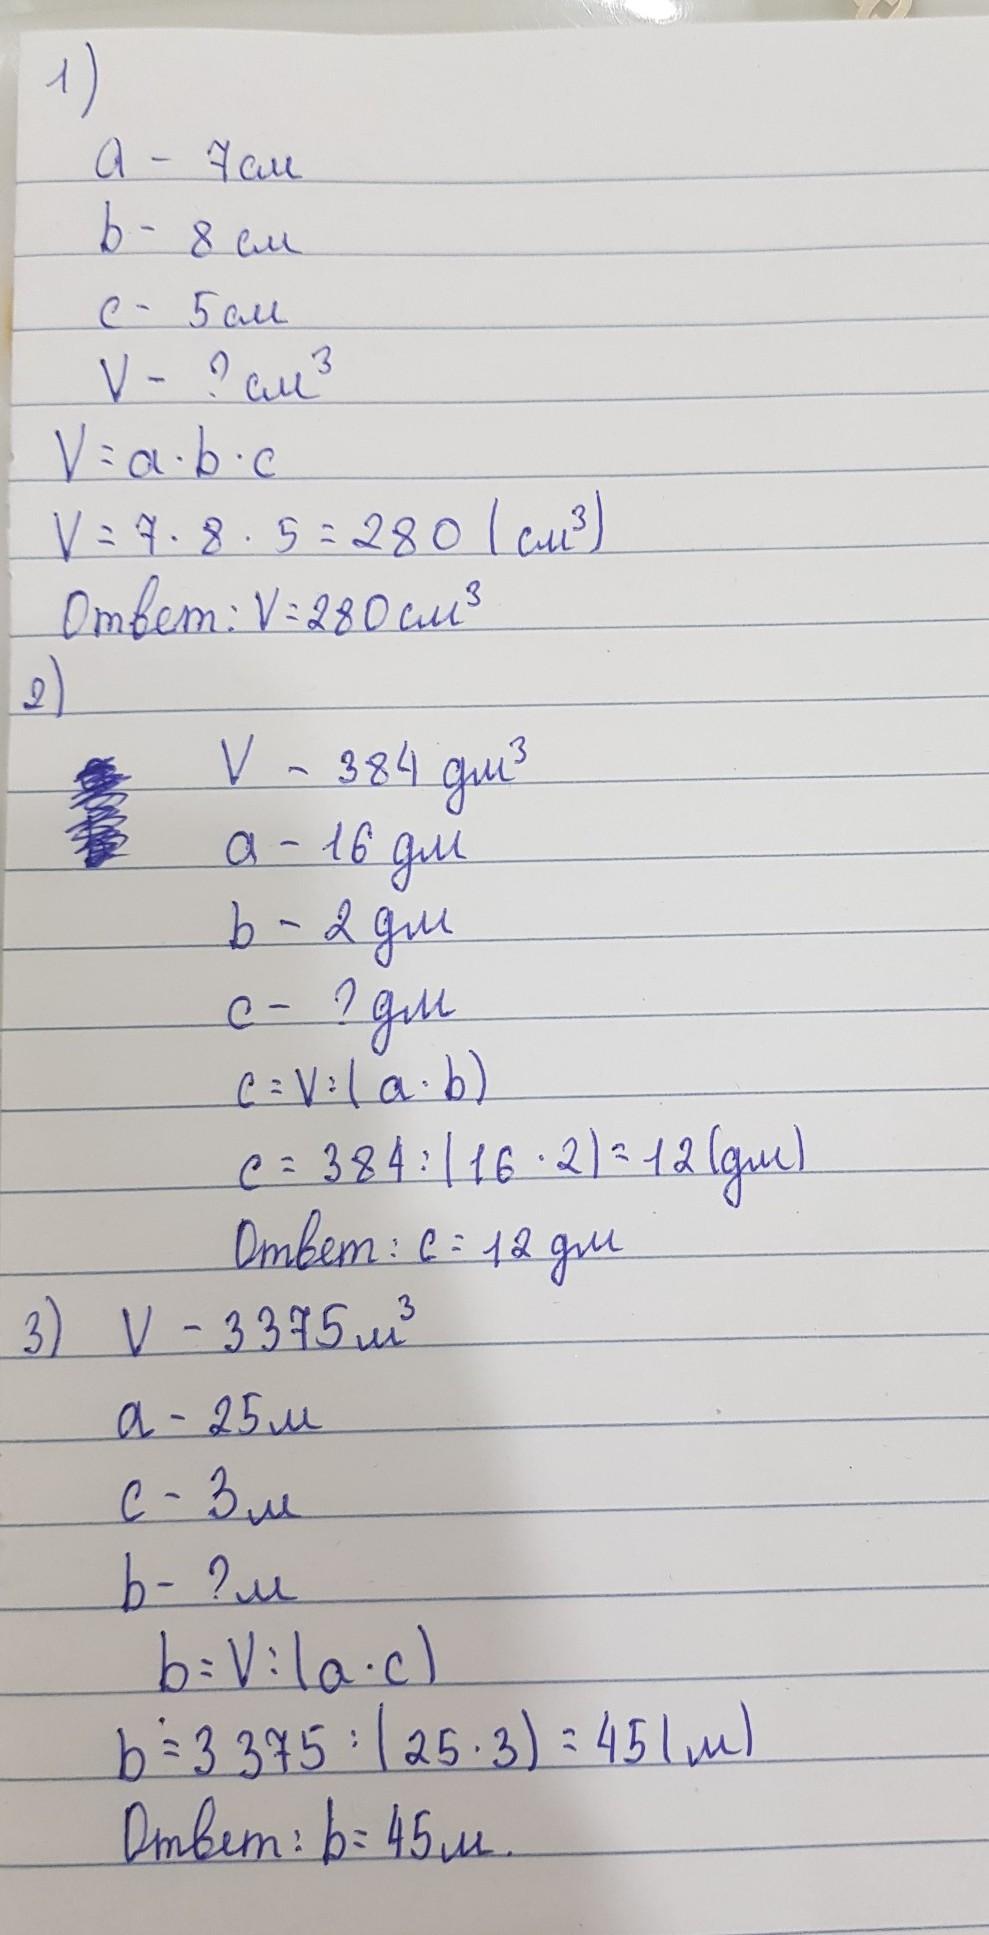 1)
a - 7см
b - 8 см
c - 5см
V - ? см³
V = a · b · c
V = 7 · 8 · 5 = 280 (см³)
Ответ: V = 280 см³
2)
V - 384 дм³
a - 16 дм
b - 2 дм
c - ? дм
c = V : (a · b)
c = 384 : (16 · 2) = 12 (дм)
Ответ: c = 12 дм
3) V - 3375 м³
a - 25 м
c - 3 м
b - ? м
b = V : (a · c)
b = 3375 : (25 · 3) = 45 (м)
Ответ: b = 45 м.